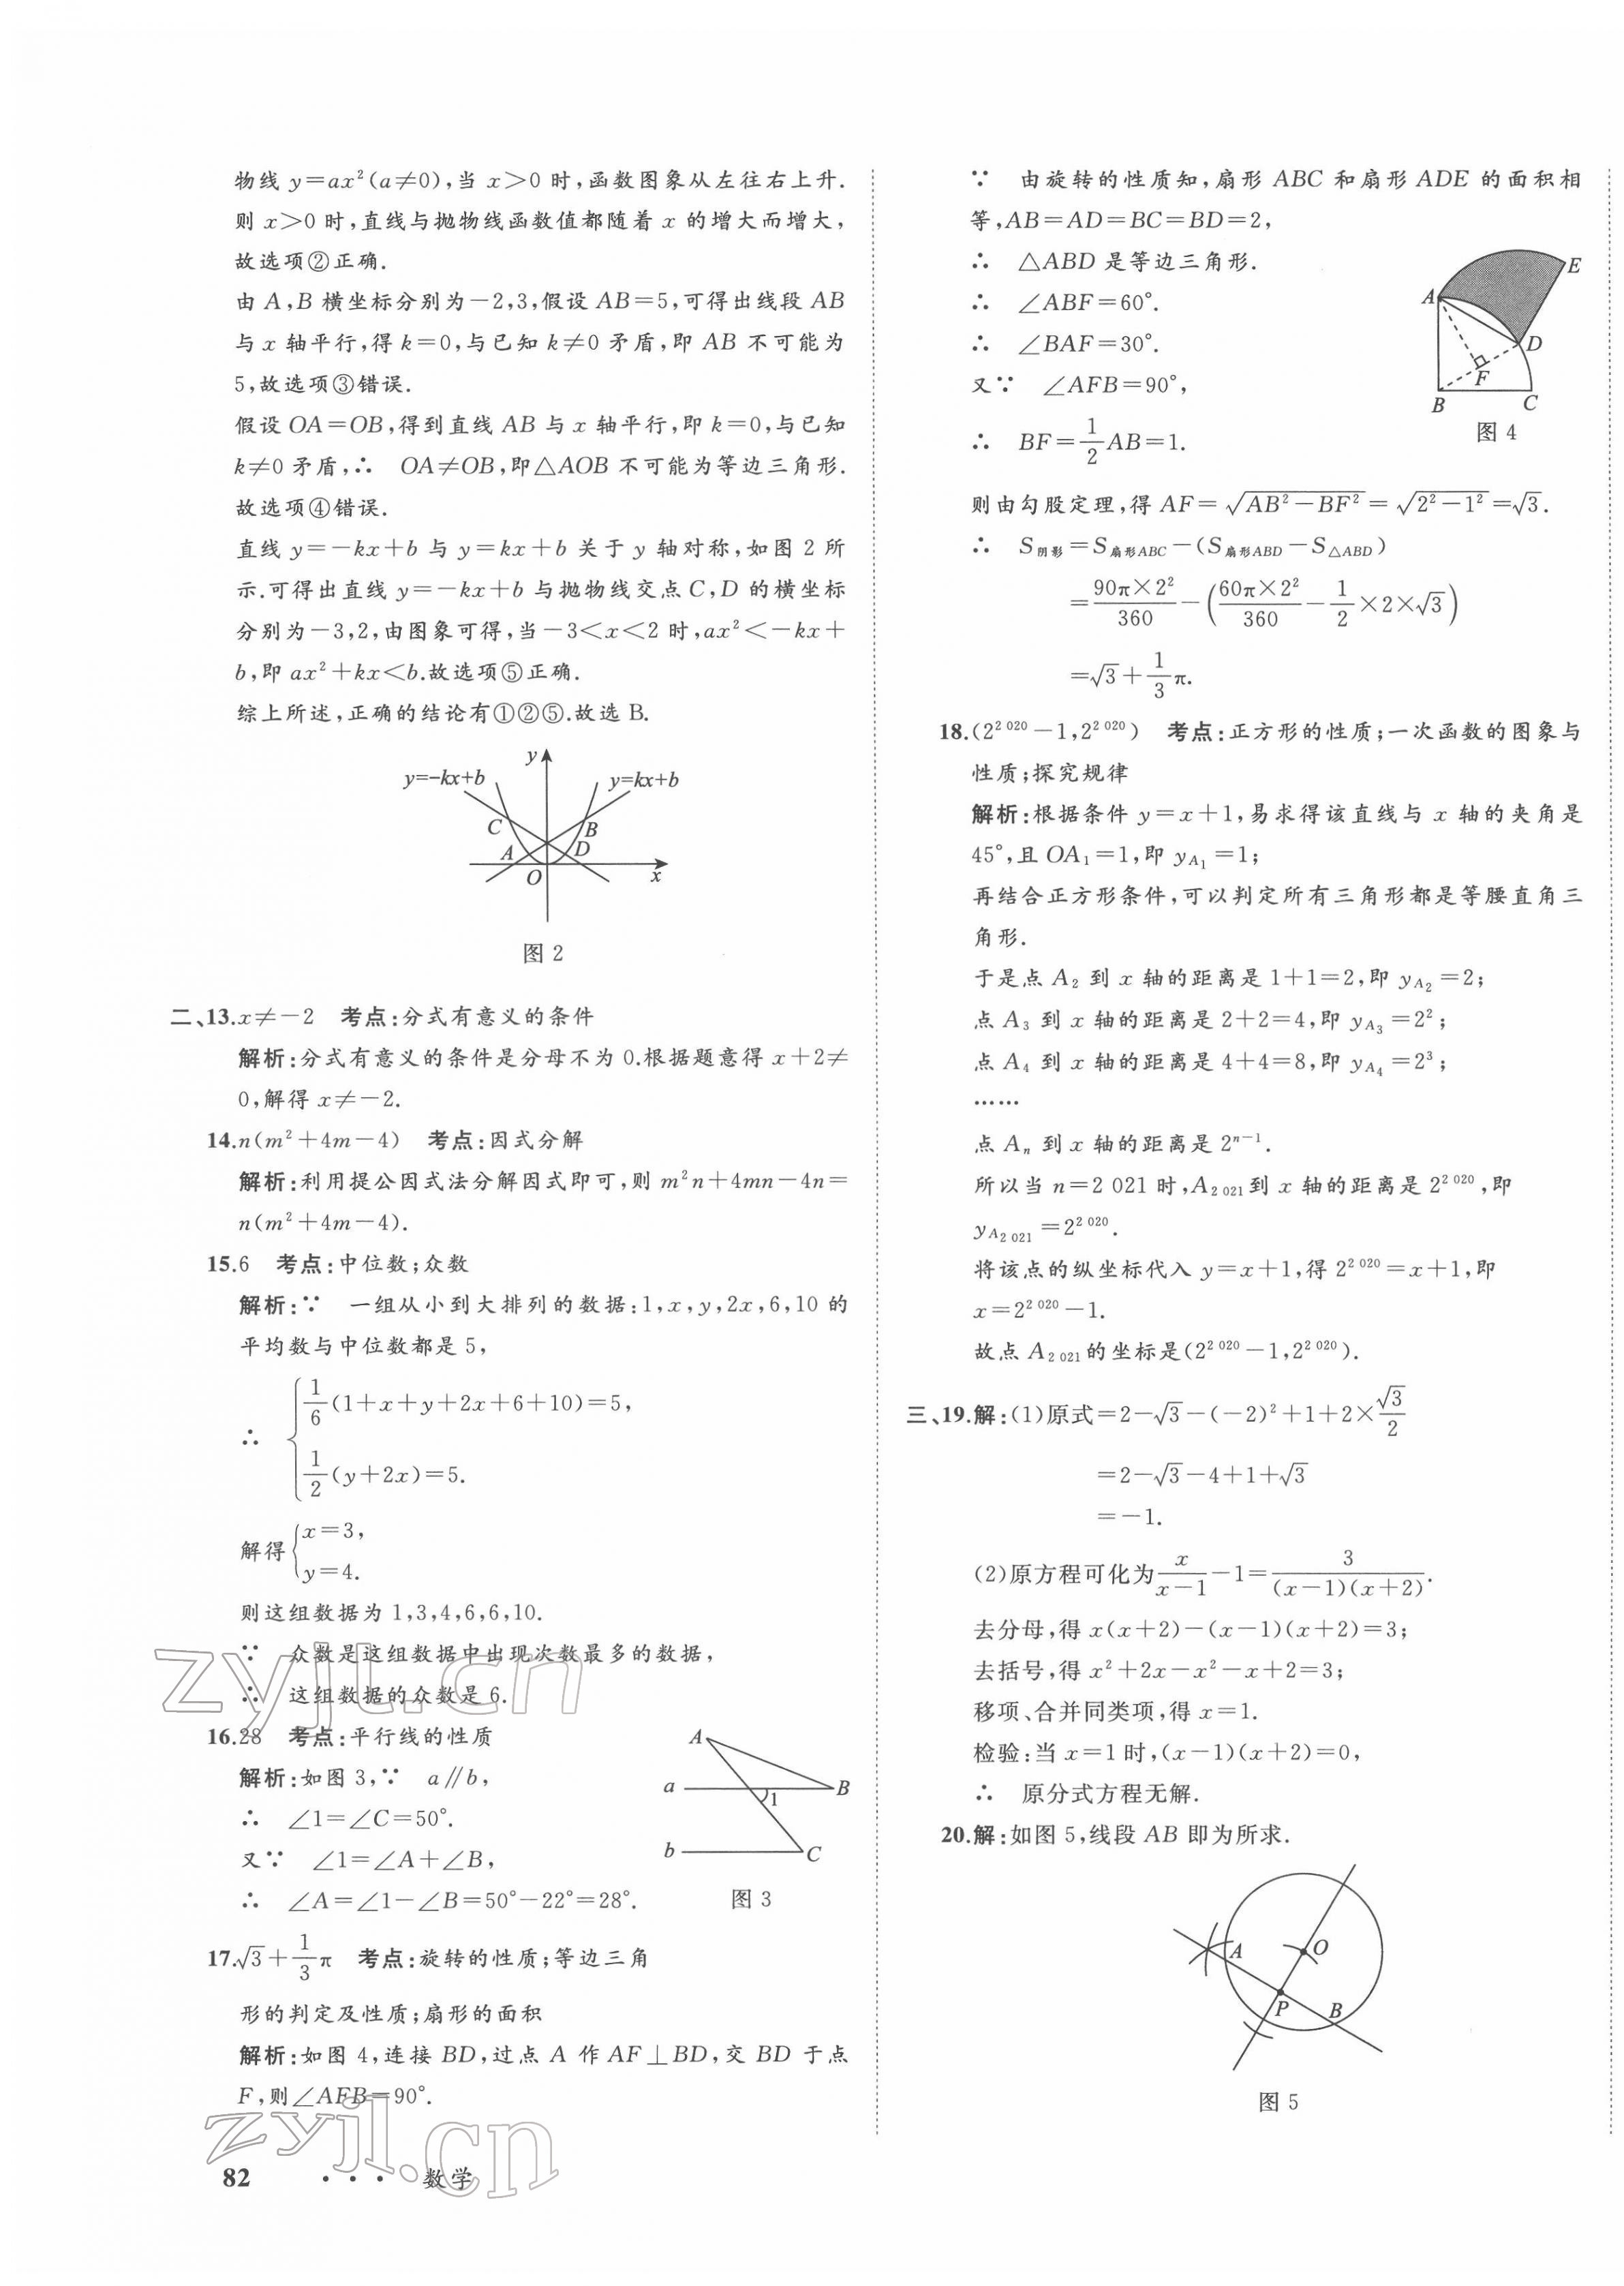 物线 y=ax²(a≠0),当 x>0 时,函数图象从左往右上升.
则 x>0 时,直线与抛物线函数值都随着 x 的增大而增大,
故选项②正确.
由 A,B 横坐标分别为-2,3,假设 AB=5,可得出线段 AB
与 x 轴平行,得 k=0,与已知 k≠0 矛盾,即 AB 不可能为
5,故选项③错误.
假设 OA=OB,得到直线 AB 与 x 轴平行,即 k=0,与已知
k≠0 矛盾,∴ OA≠OB,即△AOB 不可能为等边三角形.
故选项④错误.
直线 y=-kx+b 与 y=kx+b 关于 y 轴对称,如图 2 所
示.可得出直线 y=-kx+b 与抛物线交点 C,D 的横坐标
分别为-3,2,由图象可得,当-3<x<2 时,ax²<-kx+
b,即 ax²+kx<b.故选项⑤正确.
综上所述,正确的结论有①②⑤.故选 B.
y
y=-kx+b y=kx+b
C B
A D
O x
图 2
二、13.x≠-2 考点:分式有意义的条件
解析:分式有意义的条件是分母不为 0.根据题意得 x+2≠
0,解得 x≠-2.
14.n(m²+4m-4) 考点:因式分解
解析:利用提公因式法分解因式即可,则 m²n+4mn-4n=
n(m²+4m-4).
15.6 考点:中位数;众数
解析:∵ 一组从小到大排列的数据:1,x,y,2x,6,10 的
平均数与中位数都是 5,
∴ {1/6(1+x+y+2x+6+10)=5,
1/2(y+2x)=5.
解得{x=3,
y=4.
则这组数据为 1,3,4,6,6,10.
∵ 众数是这组数据中出现次数最多的数据,
∴ 这组数据的众数是 6.
zyjl.cn
16.28 考点:平行线的性质
解析:如图 3,∵ a∥b,
∴ ∠1=∠C=50°.
又∵ ∠1=∠A+∠B,
∴ ∠A=∠1-∠B=50°-22°=28°.
A
a B
1
b C
图 3
17.√3+1/3π 考点:旋转的性质;等边三角
形的判定及性质;扇形的面积
解析:如图 4,连接 BD,过点 A 作 AF⊥BD,交 BD 于点
F,则∠AFB=90°.
zyjl.cn
82 ··· 数学
∵ 由旋转的性质知,扇形 ABC 和扇形 ADE 的面积相
等,AB=AD=BC=BD=2,
∴ △ABD 是等边三角形.
∴ ∠ABF=60°.
∴ ∠BAF=30°.
又∵ ∠AFB=90°,
∴ BF=1/2AB=1.
E
A
D
F
B C
图 4
则由勾股定理,得 AF=√(AB²-BF²)=√(2²-1²)=√3.
∴ S阴影=S扇形ABC-(S扇形ABD-S△ABD)
=90π×2²/360-(60π×2²/360-1/2×2×√3)
=√3+1/3π.
18.(2^2 020-1,2^2 020) 考点:正方形的性质;一次函数的图象与
性质;探究规律
解析:根据条件 y=x+1,易求得该直线与 x 轴的夹角是
45°,且 OA₁=1,即 y_A₁=1;
再结合正方形条件,可以判定所有三角形都是等腰直角三
角形.
于是点 A₂ 到 x 轴的距离是 1+1=2,即 y_A₂=2;
点 A₃ 到 x 轴的距离是 2+2=4,即 y_A₃=2²;
点 A₄ 到 x 轴的距离是 4+4=8,即 y_A₄=2³;
……
点 Aₙ 到 x 轴的距离是 2ⁿ⁻¹.
所以当 n=2 021 时,A₂ ₀₂₁到 x 轴的距离是 2^2 020,即
y_A₂ ₀₂₁=2^2 020.
将该点的纵坐标代入 y=x+1,得 2^2 020=x+1,即
x=2^2 020-1.
故点 A₂ ₀₂₁的坐标是(2^2 020-1,2^2 020).
三、19.解:(1)原式=2-√3-(-2)²+1+2×√3/2
=2-√3-4+1+√3
=-1.
(2)原方程可化为x/(x-1)-1=3/((x-1)(x+2)).
去分母,得 x(x+2)-(x-1)(x+2)=3;
去括号,得 x²+2x-x²-x+2=3;
移项、合并同类项,得 x=1.
检验:当 x=1 时,(x-1)(x+2)=0,
∴ 原分式方程无解.
20.解:如图 5,线段 AB 即为所求.
A O
P B
图 5